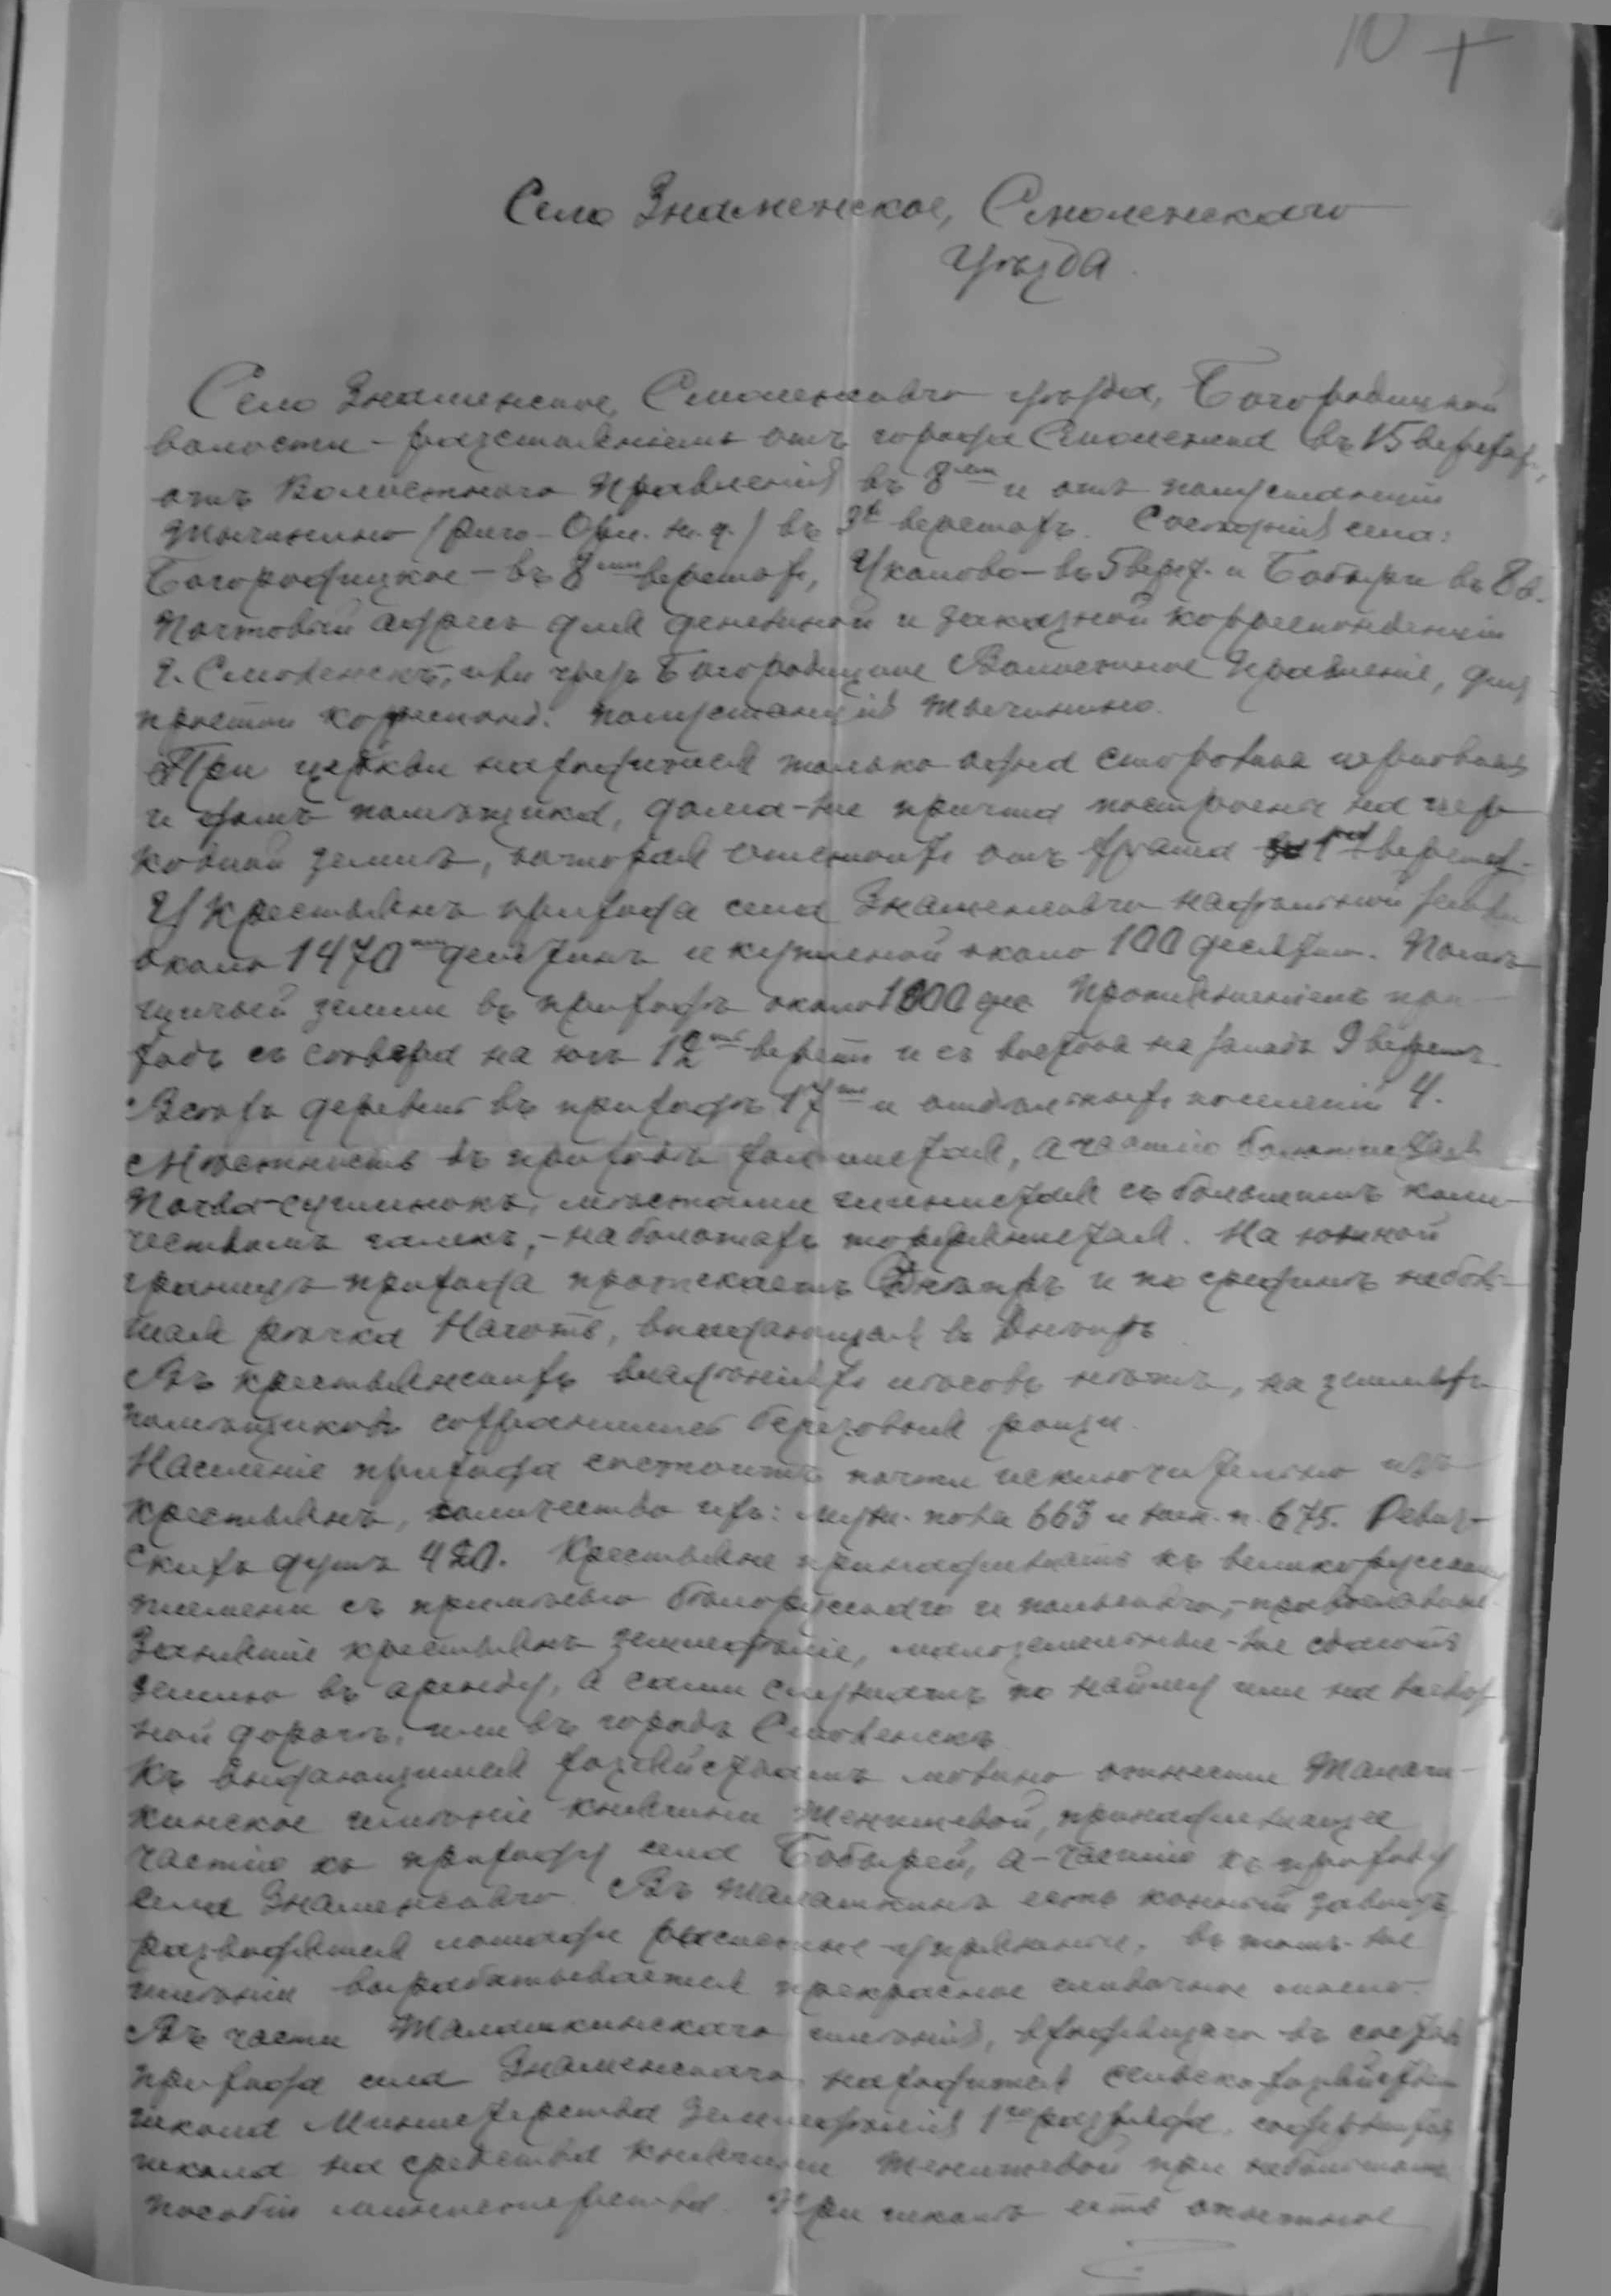 10 +
Село Знаменское, Смоленскаго
уѣзда.
Село Знаменское, Смоленскаго уѣзда, Богородицкой
волости – разстояніемъ отъ города Смоленска въ 15 верстах,
отъ Волостного Правленія въ 8ми и отъ полустанціи
Тычинино (Риго-Орл. ж. д.) въ 3х верстахъ. Сосѣднія села:
Богородицкое – въ 8ми верстах, Уколово – въ 5 верст. и Бобыри въ 8 в.
Почтовый адресъ для денежной и заказной корреспонденціи
г. Смоленскъ, или чрезъ Богородицкое Волостное Правленіе, для
простой корреспонд. полустанція Тычинино.
При церкви находится только одна сторожка церковная
и домъ помѣщика, дома-же причта построены на цер-
ковной землѣ, которая отстоитъ отъ храма 1 верст
У крестьянъ прихода села Знаменскаго надѣльной земли
около 1470 десятинъ и купленой около 100 десятин. Помѣ-
щичьей земли въ приходѣ около 1000 дес. Протяженіемъ при-
ходъ съ сѣвера на югъ 12 верстъ и съ востока на западъ 9 верстъ.
Всѣхъ деревень въ приходѣ 17 и отдѣльныхъ поселеній 4.
Мѣстность въ приходѣ холмистая, а частію болотистая
Почва – суглинокъ, мѣстами глинистая съ большимъ коли-
чествомъ галекъ, – на болотахъ торфянистая. На южной
границѣ прихода протекаетъ Днѣпръ и по срединѣ неболь-
шая рѣчка Нагать, впадающая въ Днѣпръ
Въ крестьянскихъ владѣніяхъ лѣсовъ нѣтъ, на земляхъ
помѣщиковъ сохранились березовыя рощи.
Населеніе прихода состоитъ почти исключительно изъ
крестьянъ, количество ихъ: муж. пола 663 и жен. п. 675. Ревиз-
скихъ душъ 420. Крестьяне принадлежатъ къ великорусскому
племени съ примѣсью бѣлорусскаго и польскаго, – православные.
Занятіе крестьянъ земледѣліе, малоземельные-же сдаютъ
землю въ аренду, а сами служатъ по найму или на желѣз-
ной дорогѣ, или въ городѣ Смоленскѣ
Къ выдающимся хозяйствамъ можно отнести Талаш-
кинское имѣніе княгини Тенишевой, принадлежащее
частію къ приходу села Бобырей, а – частію къ приходу
села Знаменскаго. Въ Талашкинѣ есть конный заводъ
разводятся лошади рысистые – упряжные, въ томъ-же
имѣніи вырабатывается прекрасное сливочное масло.
Въ части Талашкинскаго имѣнія, входящаго въ составъ
прихода села Знаменскаго находится сельско-хозяйствен
школа Министерства Земледѣлія 1го разряда, содержится
школа на средства княгини Тенишевой при небольшомъ
пособіи министерства. При школѣ есть опытное